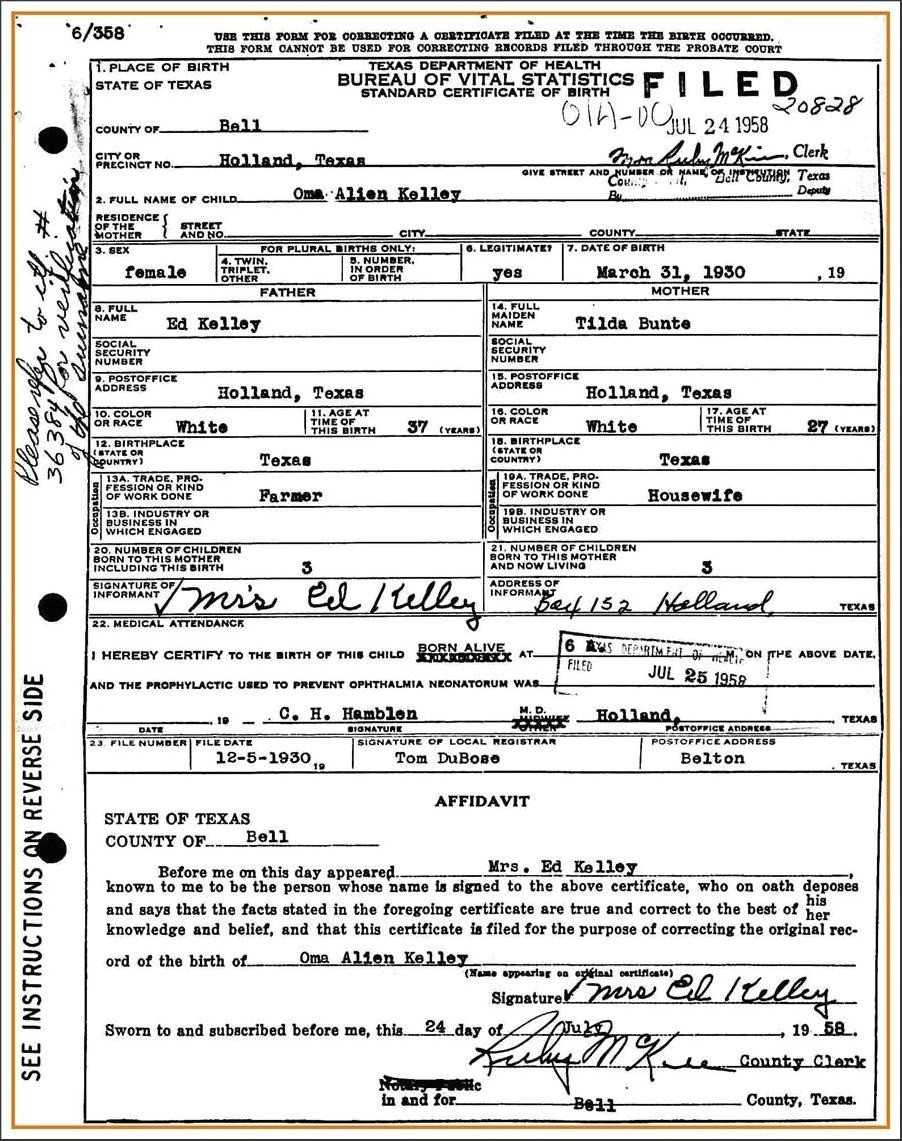 6/358
USE THIS FORM FOR CORRECTING A CERTIFICATE FILED AT THE TIME THE BIRTH OCCURRED.
THIS FORM CANNOT BE USED FOR CORRECTING RECORDS FILED THROUGH THE PROBATE COURT
1. PLACE OF BIRTH
STATE OF TEXAS
TEXAS DEPARTMENT OF HEALTH
BUREAU OF VITAL STATISTICS
STANDARD CERTIFICATE OF BIRTH
FILED
20828
JUL 24 1958
COUNTY OF Bell
CITY OR PRECINCT NO. Holland, Texas
Ruby McKee, Clerk
GIVE STREET AND NUMBER OR NAME OF INSTITUTION
Bell County, Texas
By Deputy
2. FULL NAME OF CHILD Oma Alien Kelley
RESIDENCE OF THE MOTHER { STREET AND NO. CITY COUNTY STATE
3. SEX female
FOR PLURAL BIRTHS ONLY:
4. TWIN, TRIPLET, OTHER
5. NUMBER, IN ORDER OF BIRTH
6. LEGITIMATE? yes
7. DATE OF BIRTH March 31, 1930 , 19
FATHER MOTHER
8. FULL NAME Ed Kelley
14. FULL MAIDEN NAME Tilda Bunte
SOCIAL SECURITY NUMBER
SOCIAL SECURITY NUMBER
9. POSTOFFICE ADDRESS Holland, Texas
15. POSTOFFICE ADDRESS Holland, Texas
10. COLOR OR RACE White
11. AGE AT TIME OF THIS BIRTH 37 (YEARS)
16. COLOR OR RACE White
17. AGE AT TIME OF THIS BIRTH 27 (YEARS)
12. BIRTHPLACE (STATE OR COUNTRY) Texas
18. BIRTHPLACE (STATE OR COUNTRY) Texas
Occupation
13A. TRADE, PROFESSION OR KIND OF WORK DONE Farmer
13B. INDUSTRY OR BUSINESS IN WHICH ENGAGED
Occupation
19A. TRADE, PROFESSION OR KIND OF WORK DONE Housewife
19B. INDUSTRY OR BUSINESS IN WHICH ENGAGED
20. NUMBER OF CHILDREN BORN TO THIS MOTHER INCLUDING THIS BIRTH 3
21. NUMBER OF CHILDREN BORN TO THIS MOTHER AND NOW LIVING 3
SIGNATURE OF INFORMANT Mrs Ed Kelley
ADDRESS OF INFORMANT Box 152 Holland, TEXAS
22. MEDICAL ATTENDANCE
I HEREBY CERTIFY TO THE BIRTH OF THIS CHILD BORN ALIVE AT 6 A M. ON THE ABOVE DATE,
TEXAS DEPARTMENT OF HEALTH
FILED JUL 25 1958
AND THE PROPHYLACTIC USED TO PREVENT OPHTHALMIA NEONATORUM WAS
, 19 C. H. Hamblen M. D. Holland, TEXAS
DATE SIGNATURE POSTOFFICE ADDRESS
23. FILE NUMBER
FILE DATE 12-5-1930, 19
SIGNATURE OF LOCAL REGISTRAR Tom DuBose
POSTOFFICE ADDRESS Belton . TEXAS
AFFIDAVIT
STATE OF TEXAS
COUNTY OF Bell
Before me on this day appeared Mrs. Ed Kelley,
known to me to be the person whose name is signed to the above certificate, who on oath deposes
and says that the facts stated in the foregoing certificate are true and correct to the best of his her
knowledge and belief, and that this certificate is filed for the purpose of correcting the original rec-
ord of the birth of Oma Alien Kelley
(Name appearing on original certificate)
Signature Mrs Ed Kelley
Sworn to and subscribed before me, this 24 day of July, 19 58.
Ruby McKee County Clerk
Notary Public
in and for Bell County, Texas.
Please refer to
36384 for verification
of the surname
SEE INSTRUCTIONS ON REVERSE SIDE